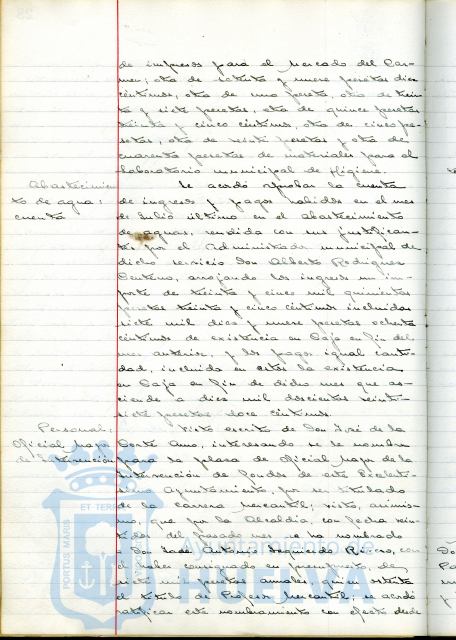 de impresos para el Mercado del Car-
men; otra de setenta y nueve pesetas diez
céntimos, otra de una peseta, otra de trein-
ta y siete pesetas, otra de quince pesetas
treinta y cinco céntimos, otra de cinco pe-
setas, otra de veinti pesetas y otra de
cuarenta pesetas de materiales para el
Laboratorio municipal de Higiene.
Abastecimien
to de agua:
cuenta
Se acordó aprobar la cuenta
de ingresos y pagos habidos en el mes
de Julio último en el abastecimiento
de aguas, rendida con sus justifican-
tes por el Administrador municipal de
dicho servicio Don Alberto Rodriguez
Centeno, arrojando los ingresos un im-
porte de treinta y cinco mil quinientas
pesetas treinta y cinco céntimos incluidas
siete mil diez y nueve pesetas ochenta
céntimos de existencia en Caja en fin del
mes anterior, y los pagos igual canti-
dad, incluida en estos la existencia
en Caja en fin de dicho mes que as-
ciende a diez mil doscientas veinti-
siete pesetas doce céntimos.
Personal:
Oficial Mayor
de Intervención
Visto escrito de Don José de la
Corte Amo, interesando se le nombre
para la plaza de Oficial Mayor de la
Intervención de Fondos de este Excelentí-
simo Ayuntamiento, por ser titulado
de la carrera Mercantil; visto, asimis-
mo, que por la Alcaldía, con fecha vein-
tidos del pasado mes se ha nombrado
a Don José Antonio Segundo Rivero, con
el haber consignado en presupuesto, de
siete mil pesetas anuales, quien ostenta
el título de Profesor Mercantil; se acordó
ratificar este nombramiento con efecto desde
Ayuntamiento de
HUELVA
PORTUS MARIS
ET TERRAE